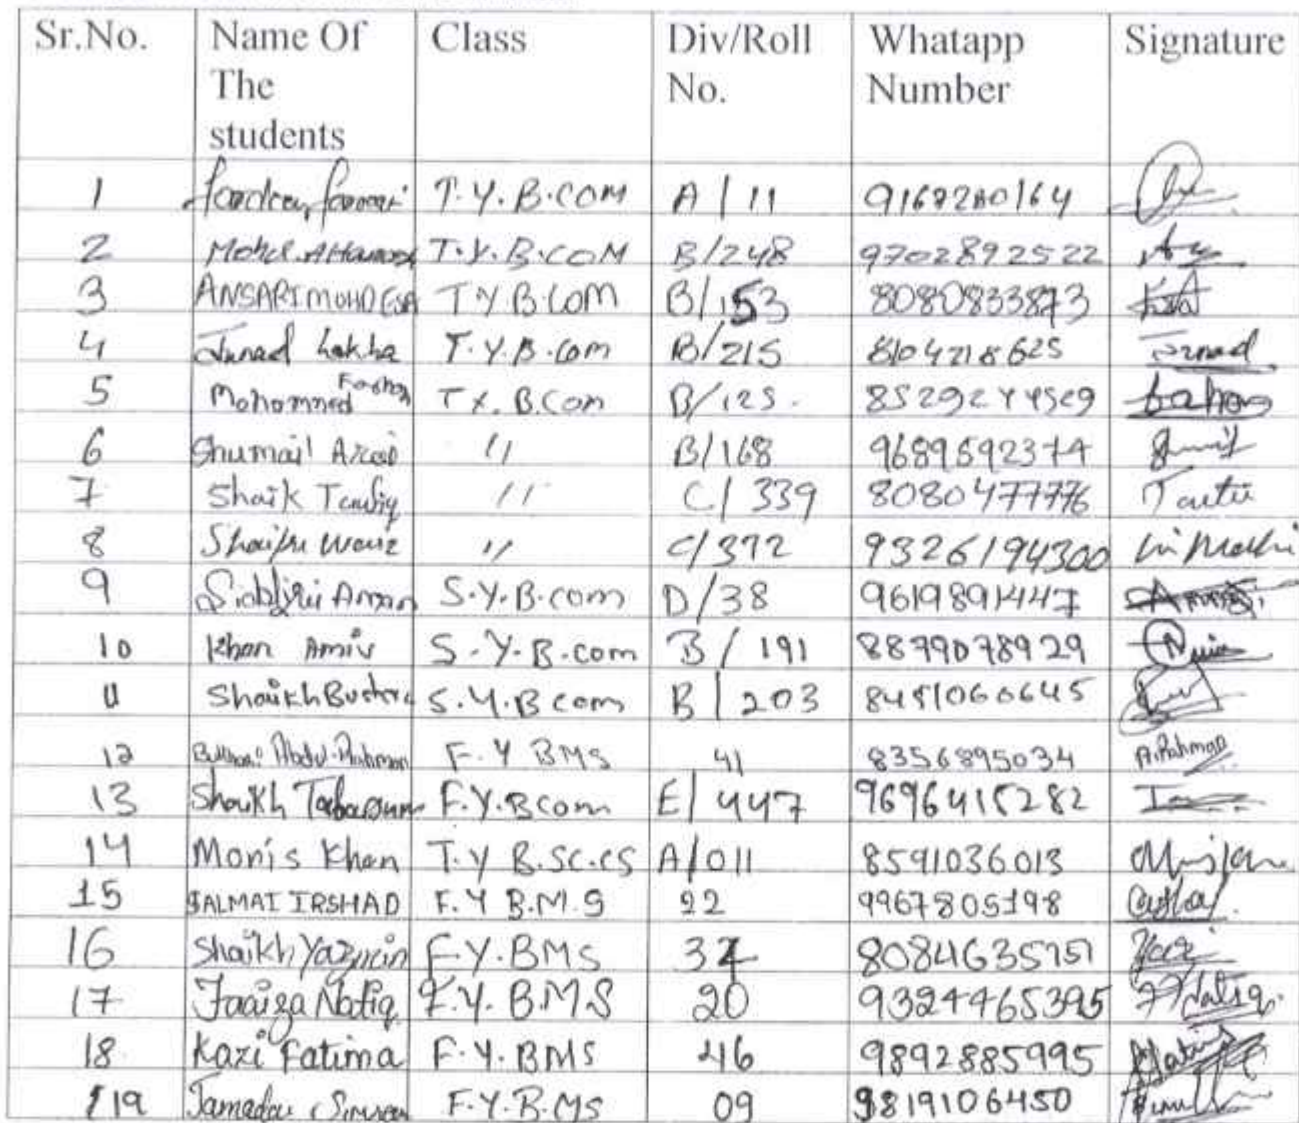 Sr.No. Name Of The students Class Div/Roll No. Whatapp Number Signature
1 T.Y.B.COM A / 11
2 Mohd. T.Y.B.COM B/248 9702892522
3 ANSARI MOHD ESA T Y B.COM B/153 8080833873
4 Junad Lakha T.Y.B.Com B/215 8104218625 Junad
5 Mohommed B.Com B/125.
6 Shumail Azad " B/168 9689592374
7 Shaik Taufiq " C/339 8080477776
8 Shaikh " C/372 9326194300
9 Aman S.Y.B.com D/38 9619891447
10 Khan Amir S.Y.B.com B / 191 8879078929
11 Shaikh Bushra S.Y.B com B / 203 8451060645
12 Abdul Rahman F.Y BMS 41 8356895034 A.Rahman
13 Shaikh Tabassum F.Y.Bcom E/ 447
14 Monis Khan T.Y B.SC.CS A/011 8591036013
15 IRSHAD F.Y B.M.S 22 9967805198
16 Shaikh F.Y.BMS
17 Faaiza Natiq F.Y.B.M.S 20 9324465395
18 Kazi Fatima F.Y.BMS 46 9892885995
19 F.Y.B.MS 09 9819106450